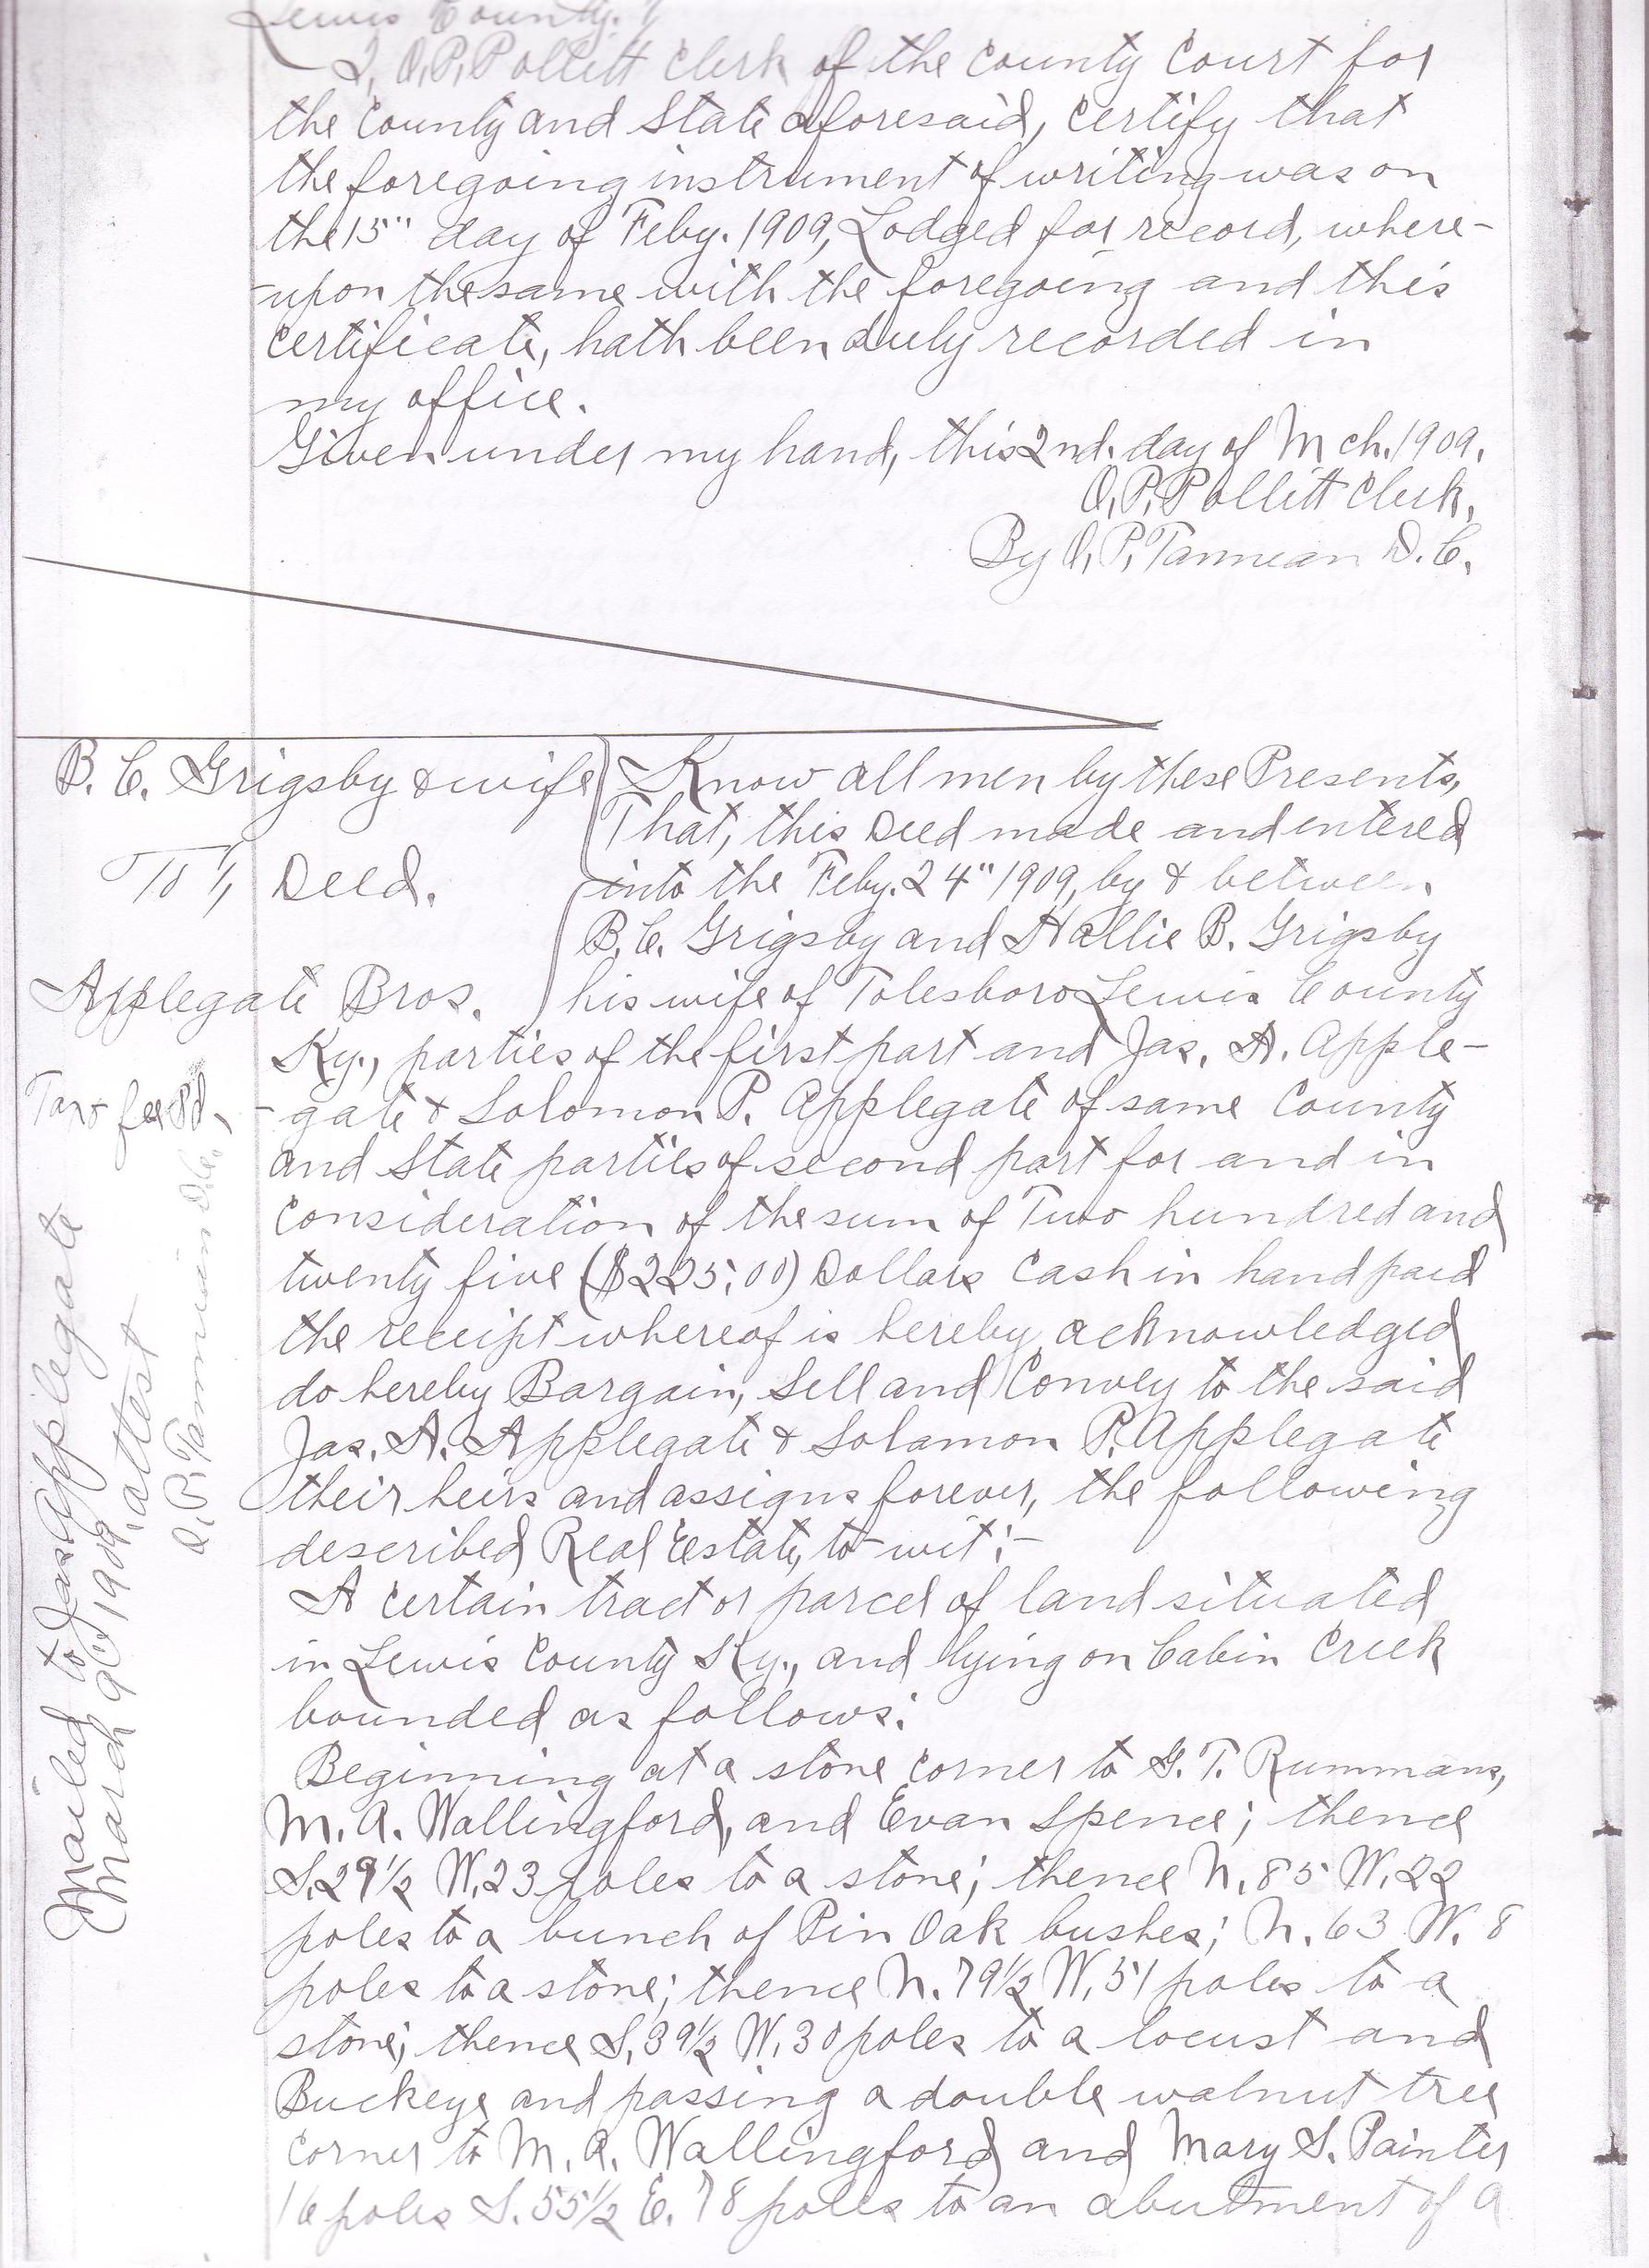 Lewis County.
I, O.P. Pollitt Clerk of the County Court for
the County and State aforesaid, certify that
the foregoing instrument of writing was on
the 15" day of Feby. 1909, Lodged for record, where-
-upon the same with the foregoing and this
certificate, hath been duly recorded in
my office.
Given under my hand, this 2nd. day of Mch. 1909.
O.P. Pollitt Clerk,
By O.P. Tannian D.C.
B.C. Grigsby & wife
To Deed.
Applegate Bros.
Know all men by these Presents,
That, this Deed made and entered
into the Feby. 24" 1909, by & between
B.C. Grigsby and Hallie B. Grigsby
his wife of Tolesboro Lewis County
Ky., parties of the first part and Jas. A. Apple-
-gate & Solomon P. Applegate of same County
and State parties of second part for and in
consideration of the sum of Two hundred and
twenty five ($225.00) Dollars Cash in hand paid
the receipt whereof is hereby acknowledged
do hereby Bargain, Sell and Convey to the said
Jas. A. Applegate & Solamon P. Applegate
their heirs and assigns forever, the following
described Real Estate, to-wit:-
A certain tract or parcel of land situated
in Lewis County Ky., and lying on Cabin Creek
bounded as follows:
Beginning at a stone corner to G.T. Rummans,
M.A. Wallingford, and Evan Spence; thence
S. 29 1/2 W. 23 poles to a stone; thence N. 85 W. 22
poles to a bunch of Pin Oak bushes; N. 63 W. 8
poles to a stone; thence N. 79 1/2 W. 51 poles to a
stone; thence S. 39 1/2 W. 30 poles to a locust and
Buckeye and passing a double walnut tree
corner to M.A. Wallingford and Mary S. Painter
16 poles S. 55 1/2 E. 78 poles to an abutment of a
Tax fee Pd.
Mailed to Jas Applegate
March 9th 1909, attest
O.P. Tannian D.C.